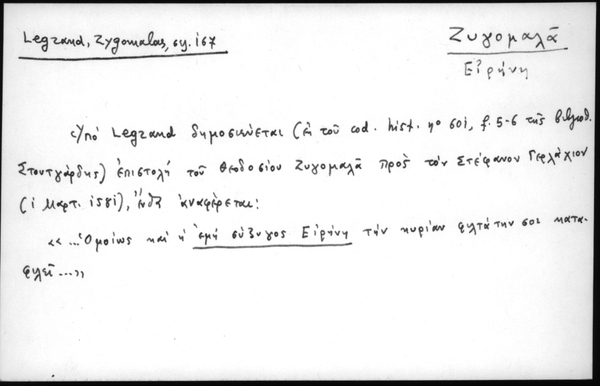 Legrand, Zygomalas, σημ. 167
Ζυγομαλᾶ
Εἰρήνη
Ὑπό Legrand δημοσιεύεται (ἐκ τοῦ cod. hist. nº 601, f. 5-6 τῆς βιβλιοθ.
Στουτγάρδης) ἐπιστολή τοῦ Θεοδοσίου Ζυγομαλᾶ πρός τόν Στέφανον Γερλάχιον
(1 Μαρτ. 1581), ἔνθα ἀναφέρεται:
«...Ὁμοίως καί ἡ ἐμή σύζυγος Εἰρήνη τήν κυρίαν φιλτάτην σοι κατα-
φιλεῖ...»